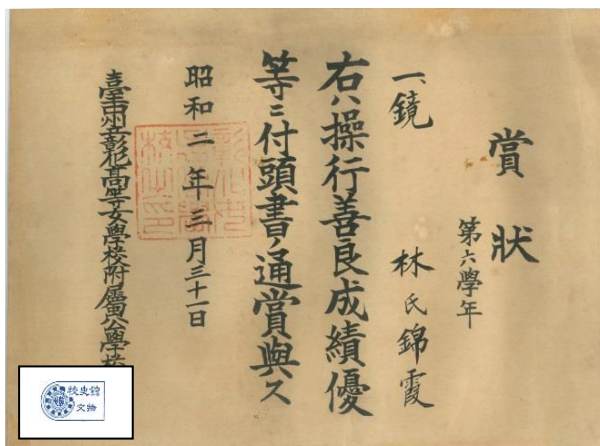 賞狀
第六學年
林氏錦霞
一、鏡
右ハ操行善良成績優
等ニ付頭書ノ通賞與ス
昭和二年三月三十一日
臺中州立彰化高等女學校附屬公學校
校史館
文物